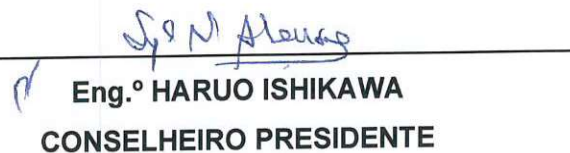 Eng.º HARUO ISHIKAWA
CONSELHEIRO PRESIDENTE